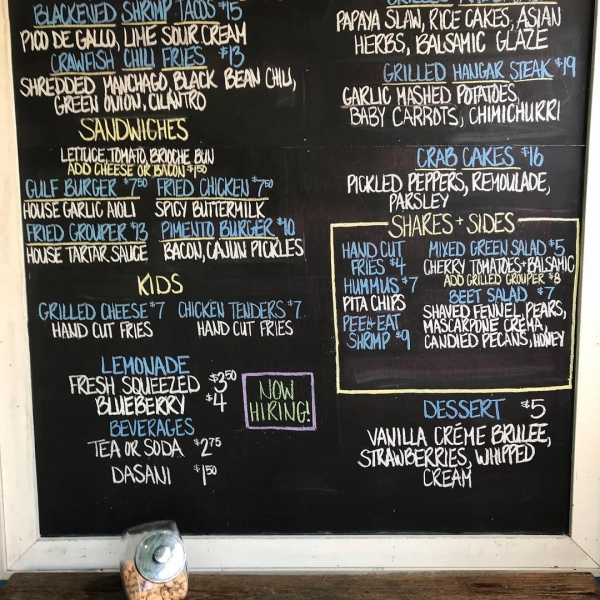 BLACKENED SHRIMP TACOS $15
PICO DE GALLO, LIME SOUR CREAM
CRAWFISH CHILI FRIES $13
SHREDDED MANCHAGO, BLACK BEAN CHILI,
GREEN ONION, CILANTRO
SANDWICHES
LETTUCE, TOMATO, BRIOCHE BUN
ADD CHEESE OR BACON $1.50
GULF BURGER $7.50 FRIED CHICKEN $7.50
HOUSE GARLIC AIOLI SPICY BUTTERMILK
FRIED GROUPER $13 PIMENTO BURGER $10
HOUSE TARTAR SAUCE BACON, CAJUN PICKLES
KIDS
GRILLED CHEESE $7 CHICKEN TENDERS $7
HAND CUT FRIES HAND CUT FRIES
LEMONADE
FRESH SQUEEZED $3.50
BLUEBERRY $4
BEVERAGES
TEA OR SODA $2.75
DASANI $1.50
NOW
HIRING!
PAPAYA SLAW, RICE CAKES, ASIAN
HERBS, BALSAMIC GLAZE
GRILLED HANGAR STEAK $19
GARLIC MASHED POTATOES,
BABY CARROTS, CHIMICHURRI
CRAB CAKES $16
PICKLED PEPPERS, REMOULADE,
PARSLEY
SHARES + SIDES
HAND CUT
FRIES $4
HUMMUS $7
PITA CHIPS
PEEL + EAT
SHRIMP $9
MIXED GREEN SALAD $5
CHERRY TOMATOES + BALSAMIC
ADD GRILLED GROUPER $8
BEET SALAD $7
SHAVED FENNEL, PEARS,
MASCARPONE CREMA,
CANDIED PECANS, HONEY
DESSERT $5
VANILLA CRÉME BRULEE,
STRAWBERRIES, WHIPPED
CREAM